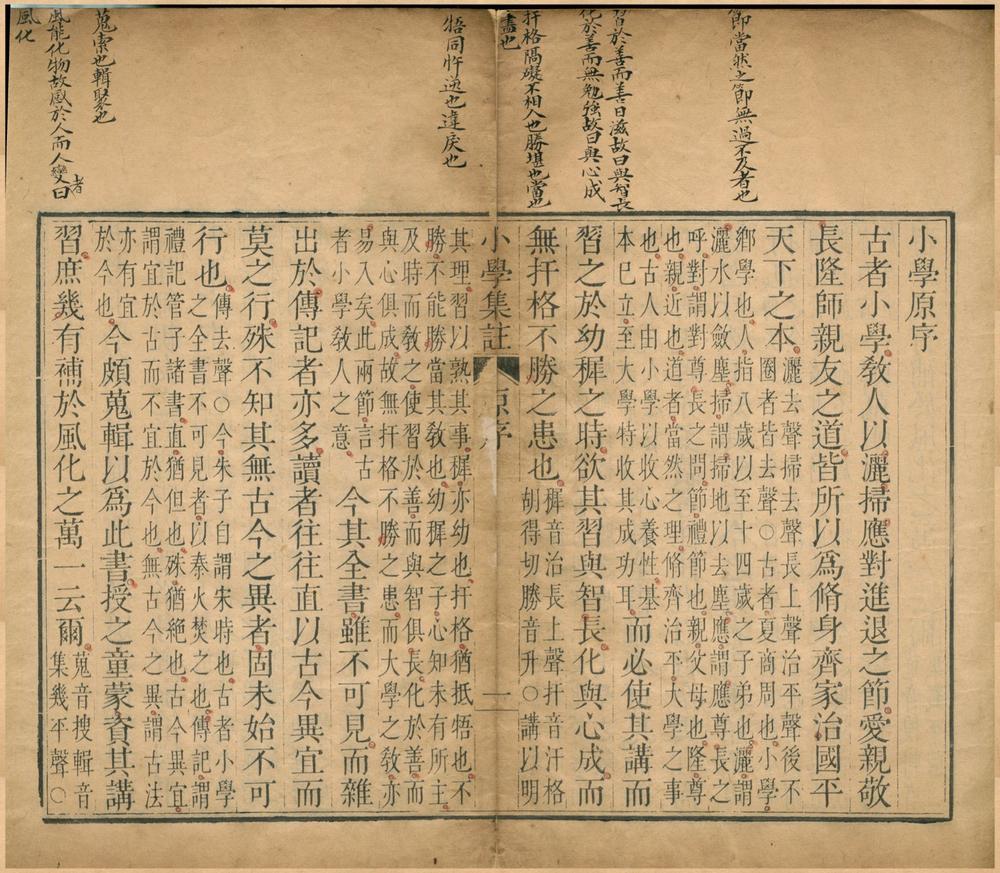 節當然之節無過不及者也
習於善而善日滋故曰與智長
化於善而無勉強故曰與心成
扞格隔礙不相入也勝堪也當也
盡也
牾同忤逆也違戾也
蒐索也輯聚也
風能化物故感於人而人變者曰
風化
小學原序
古者小學敎人以灑掃應對進退之節愛親敬
長隆師親友之道皆所以爲脩身齊家治國平
天下之本
灑去聲掃去聲長上聲治平聲後不
圈者皆去聲○古者夏商周也小學
鄉學也人指八歲以至十四歲之子弟也灑謂
灑水以斂塵掃謂掃地以去塵應謂應尊長之
呼對謂對尊長之問節禮節也親父母也隆尊
也親近也道者當然之理脩齊治平大學之事
也古人由小學以收心養性基
本已立至大學特收其成功耳
而必使其講而
習之於幼穉之時欲其習與智長化與心成而
無扞格不勝之患也
穉音治長上聲扞音汗格
胡得切勝音升○講以明
小學集註 原序 一
其理習以熟其事穉亦幼也扞格猶抵牾也不
勝不能勝當其敎也幼穉之子心知未有所主
及時而敎之使習於善而與智俱長化於善而
與心俱成故無扞格不勝之患而大學之敎亦
易入矣此兩節言古
者小學敎人之意
今其全書雖不可見而雜
出於傳記者亦多讀者往往直以古今異宜而
莫之行殊不知其無古今之異者固未始不可
行也
傳去聲○今朱子自謂宋時也古者小學
之全書不可見者以秦火焚之也傳記謂
禮記管子諸書直猶但也殊猶絶也古今異宜
謂宜於古而不宜於今也無古今之異謂古法
亦有宜
於今也
今頗蒐輯以爲此書授之童蒙資其講
習庶幾有補於風化之萬一云爾
蒐音搜輯音
集幾平聲○